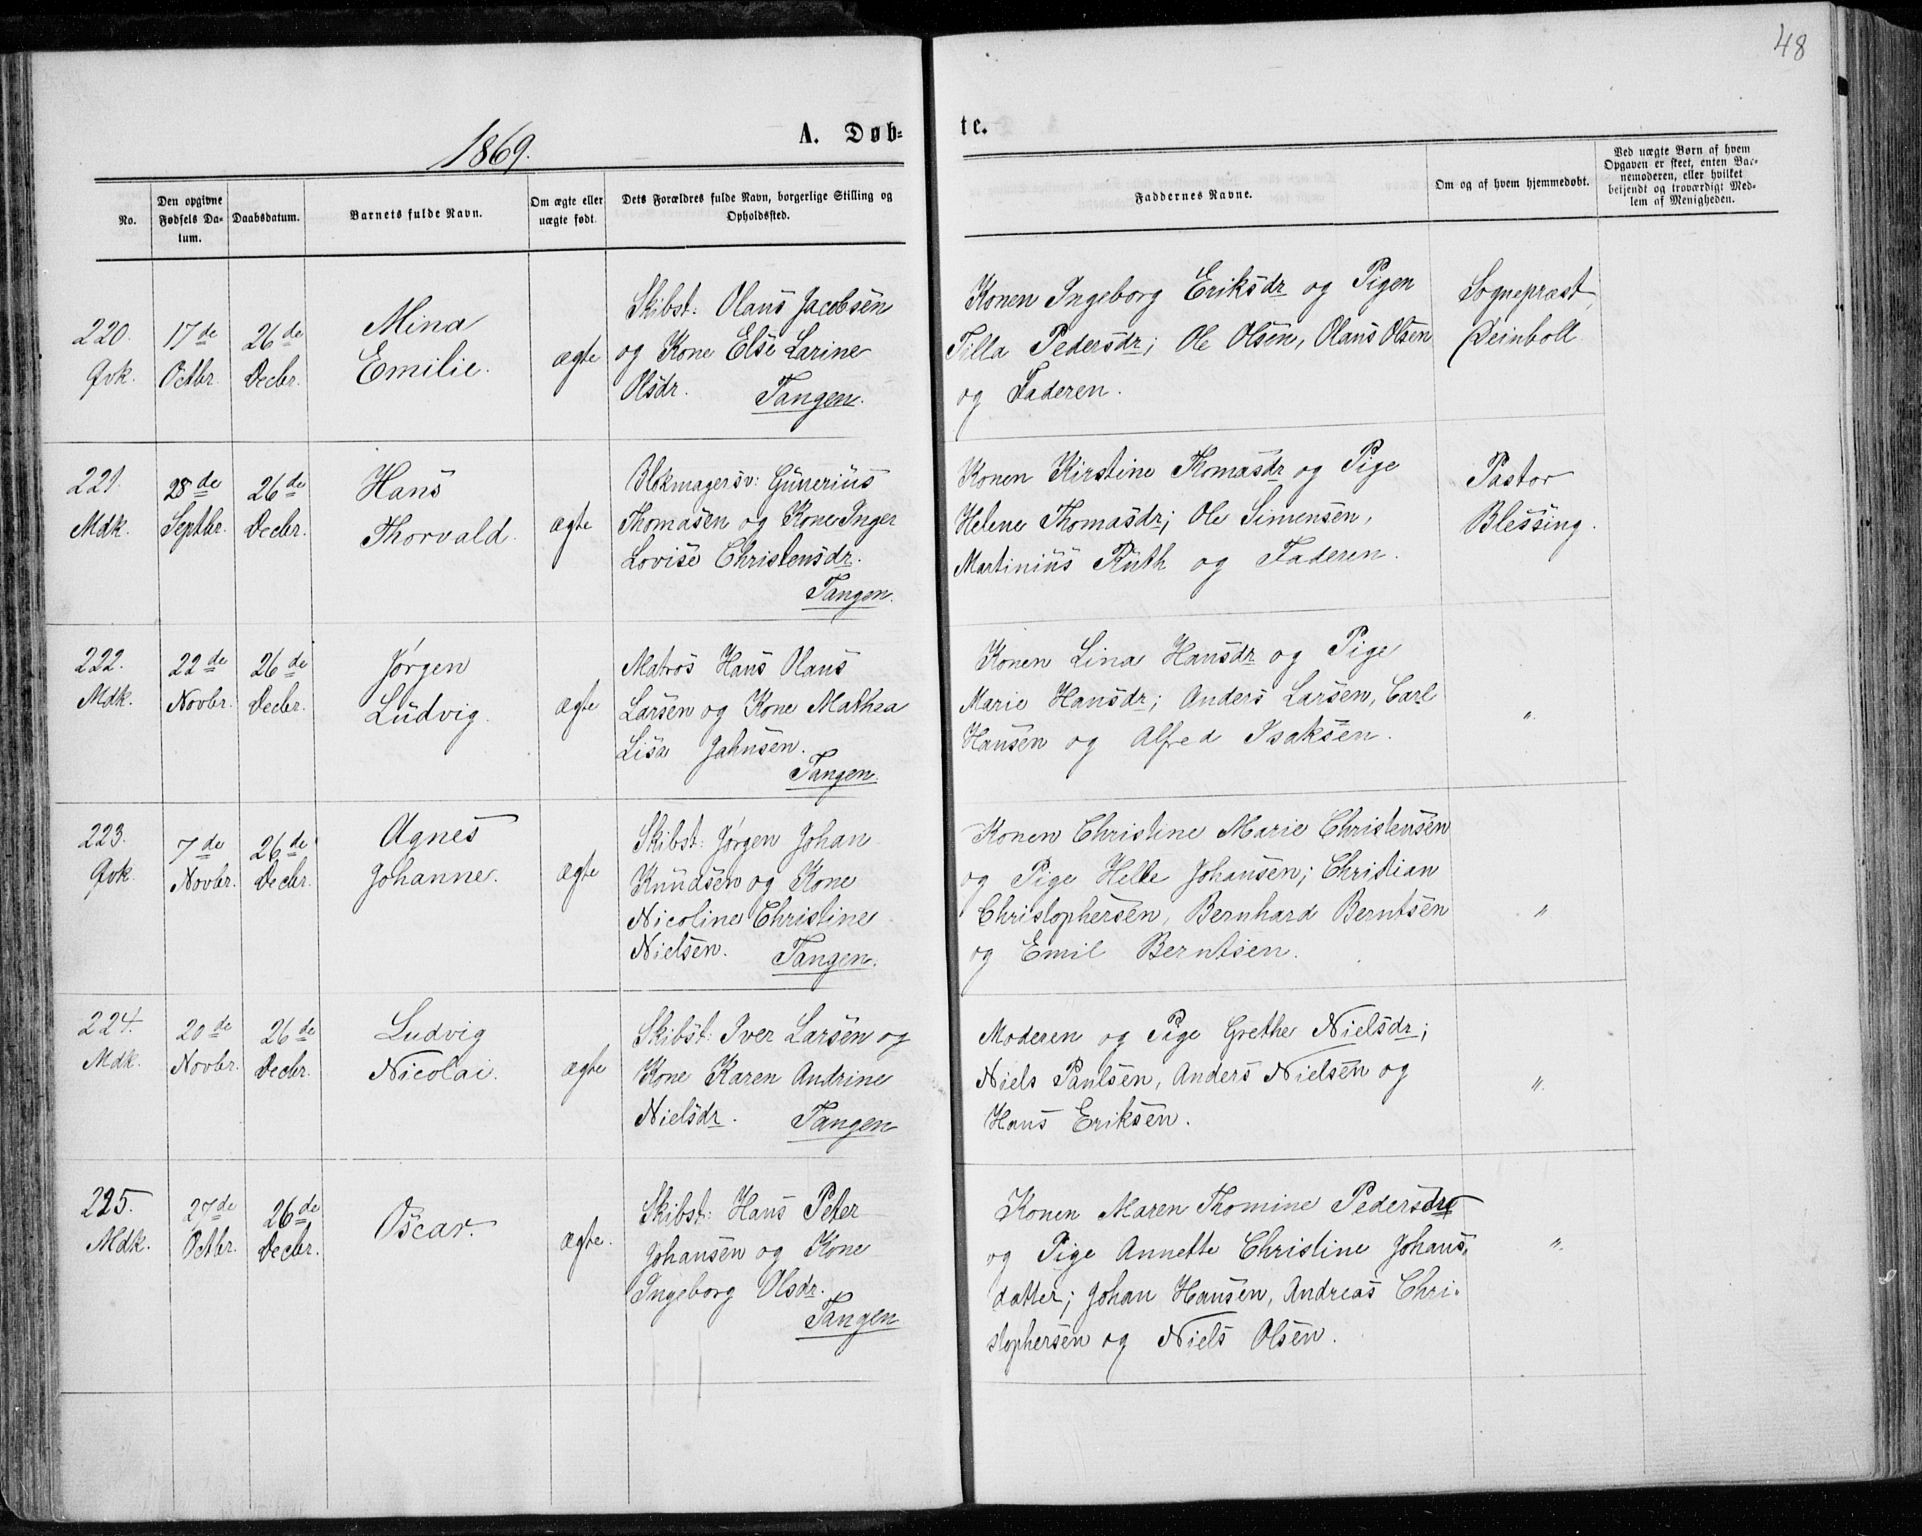 48
1869.
A. Døb-
te.
No.
Den opgivne Fødsels Da-
tum.
Daabsdatum.
Barnets fulde Navn.
Om ægte eller
uægte født.
Dets Forældres fulde Navn, borgerlige Stilling og
Opholdssted.
Faddernes Navne.
Om og af hvem hjemmedøbt.
Ved uægte Børn af hvem
Opgaven er skeet, enten Bar-
nemoderen, eller hvilket
betjendt og troværdigt Med-
lem af Menigheden.
220.
Qvk.
17de
Octbr.
26de
Decbr.
Mina
Emilie.
ægte
Skibst: Olaus Jacobsen
og Kone Else Larine
Olsdr. Tangen.
Konen Ingeborg Eriksdr og Pigen
Tilla Pedersdr; Ole Olsen, Olaus Olsen
og Faderen.
Sognepræst
Deinboll
221.
Mdk.
28de
Septbr.
26de
Decbr.
Hans
Thorvald.
ægte
Blokmagersv: Gunerius
Thomasen og Kone Inger
Lovise Christensdr.
Tangen.
Konen Kirstine Thomasdr og Pige
Helene Thomasdr; Ole Simensen,
Martinius Ruth og Faderen.
Pastor
Blessing.
222.
Mdk.
22de
Novbr.
26de
Decbr.
Jørgen
Ludvig.
ægte
Matros Hans Olaus
Larsen og Kone Mathea
Lisa Jahnsen.
Tangen.
Konen Lina Hansdr og Pige
Marie Hansdr; Anders Larsen, Carl
Hansen og Alfred Isaksen.
"
223.
Qvk.
7de
Novbr.
26de
Decbr.
Agnes
Johanne.
ægte
Skibst: Jørgen Johan
Knudsen og Kone
Nicoline Christine
Nielsen. Tangen.
Konen Christine Marie Christensen
og Pige Helle Johansen; Christian
Christophersen, Bernhard Berntsen
og Emil Berntsen.
"
224.
Mdk.
20de
Novbr.
26de
Decbr.
Ludvig
Nicolai.
ægte
Skibst: Iver Larsen og
Kone Karen Andrine
Nielsdr. Tangen
Moderen og Pige Grethe Nielsdr;
Niels Paulsen, Anders Nielsen og
Hans Eriksen.
"
225.
Mdk.
27de
Octbr.
26de
Decbr.
Oscar.
ægte.
Skibst: Hans Peter
Johansen og Kone
Ingeborg Olsdr.
Tangen
Konen Maren Thomine Pedersdr
og Pige Annette Christine Johans-
datter; Johan Hansen, Andreas Chri-
stophersen og Niels Olsen.
"